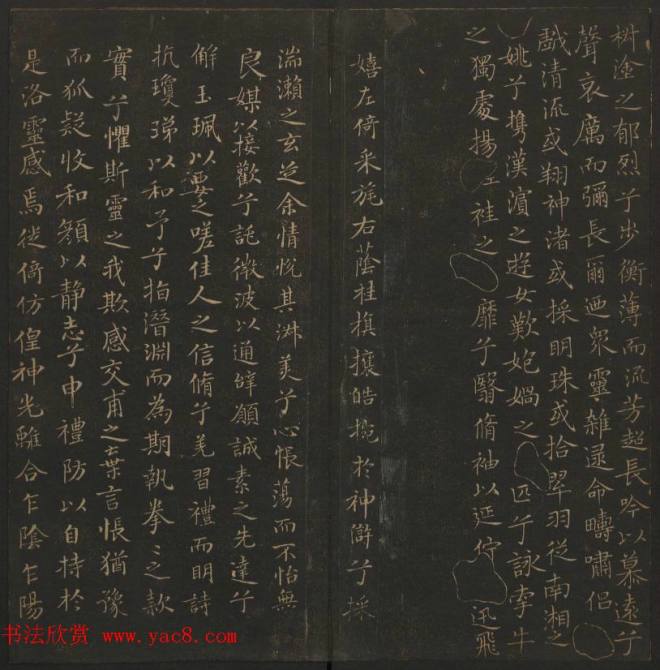 椒塗之郁烈兮步衡薄而流芳超長吟以慕遠兮
聲哀厲而彌長爾迺眾靈雜遝命疇嘯侶
戲清流或翔神渚或採明珠或拾翠羽從南湘之
姚兮攜漢濱之遊女歎匏媧之匹兮詠牽牛
之獨處揚袿之靡兮翳脩袖以延佇迅飛
嬉左倚采旄右蔭桂旗攘皓捥於神滸兮採
湍瀨之玄芝余情悅其淑美兮心悵蕩而不怡無
良媒以接歡兮託微波以通辝願誠素之先達兮
解玉珮以要之嗟佳人之信脩兮羌習禮而明詩
抗瓊珶以和予兮指潛淵而為期執拳〻之款
實兮懼斯靈之我欺感交甫之棄言悵猶豫
而狐疑收和顏以静志兮申禮防以自持於
是洛靈感焉徙倚仿偟神光離合乍陰乍陽
书法欣赏 www.yac8.com